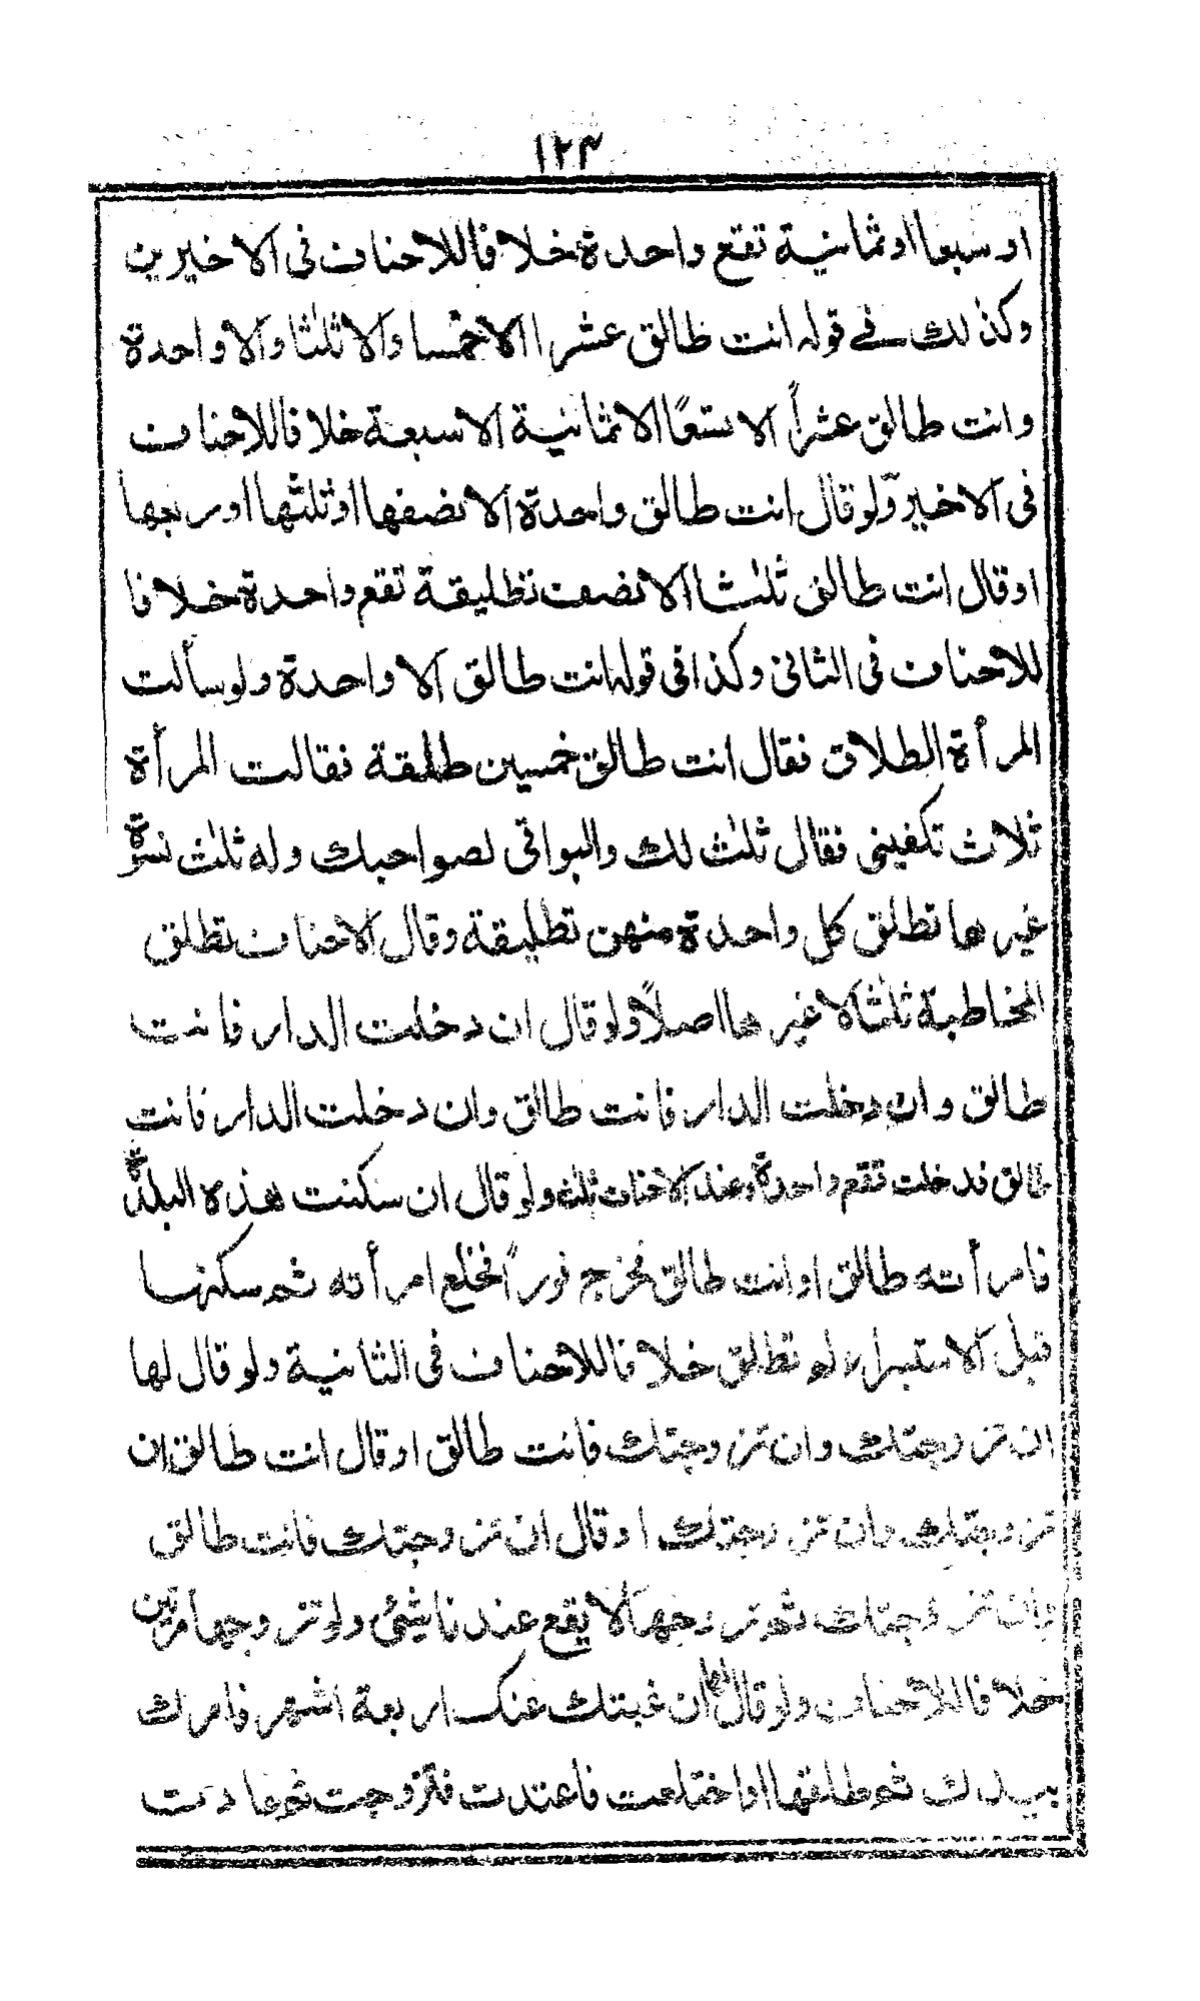 ١٢٣
او سبعا او ثمانية تقع واحدة خلافا للاحناف فى الاخيرين
وكذلك فے قوله انت طالق عشرا الا خمسا والا ثلثا والا واحدة
وانت طالق عشراً الا تسعًا الا ثمانية الا سبعة خلافا للاحناف
فى الاخير ولو قال انت طالق واحدة الا نصفها او ثلثها او ربعها
او قال انت طالق ثلثا الا نصف تطليقة تقع واحدة خلافا
للاحناف فى الثانى وكذا فى قوله انت طالق الا واحدة ولو سألت
المرأة الطلاق فقال انت طالق خمسين طلقة فقالت المرأة
ثلاث تكفينى فقال ثلث لك والبواقى لصواحبك وله ثلث نسوة
غيرها تطلق كل واحدة منهن تطليقة وقال الاحناف تطلق
المخاطبة ثلثا لا غيرها اصلاً ولو قال ان دخلت الدار فانت
طالق وان دخلت الدار فانت طالق وان دخلت الدار فانت
طالق فدخلت تقع واحدة وعند الاحناف ثلث ولو قال ان سكنت هذه البلدة
فامرأته طالق او انت طالق فخرج فوراً فخلع امرأته ثم سكنها
قبل الاستبراء لم تطلق خلافا للاحناف فى الثانية ولو قال لها
ان تزوجتك وان تزوجتك فانت طالق او قال انت طالق ان
تزوجتك وان تزوجتك او قال ان تزوجتك فانت طالق
وان تزوجتك ثم تزوجها لا يقع عندنا شئ ولو تزوجها مرتين
خلافا للاحناف ولو قال لها ان غبتك عنك اربعة اشهر فامرك
بيدك ثم طلقها او اختلعت فاعتدت فتزوجت ثم عادت